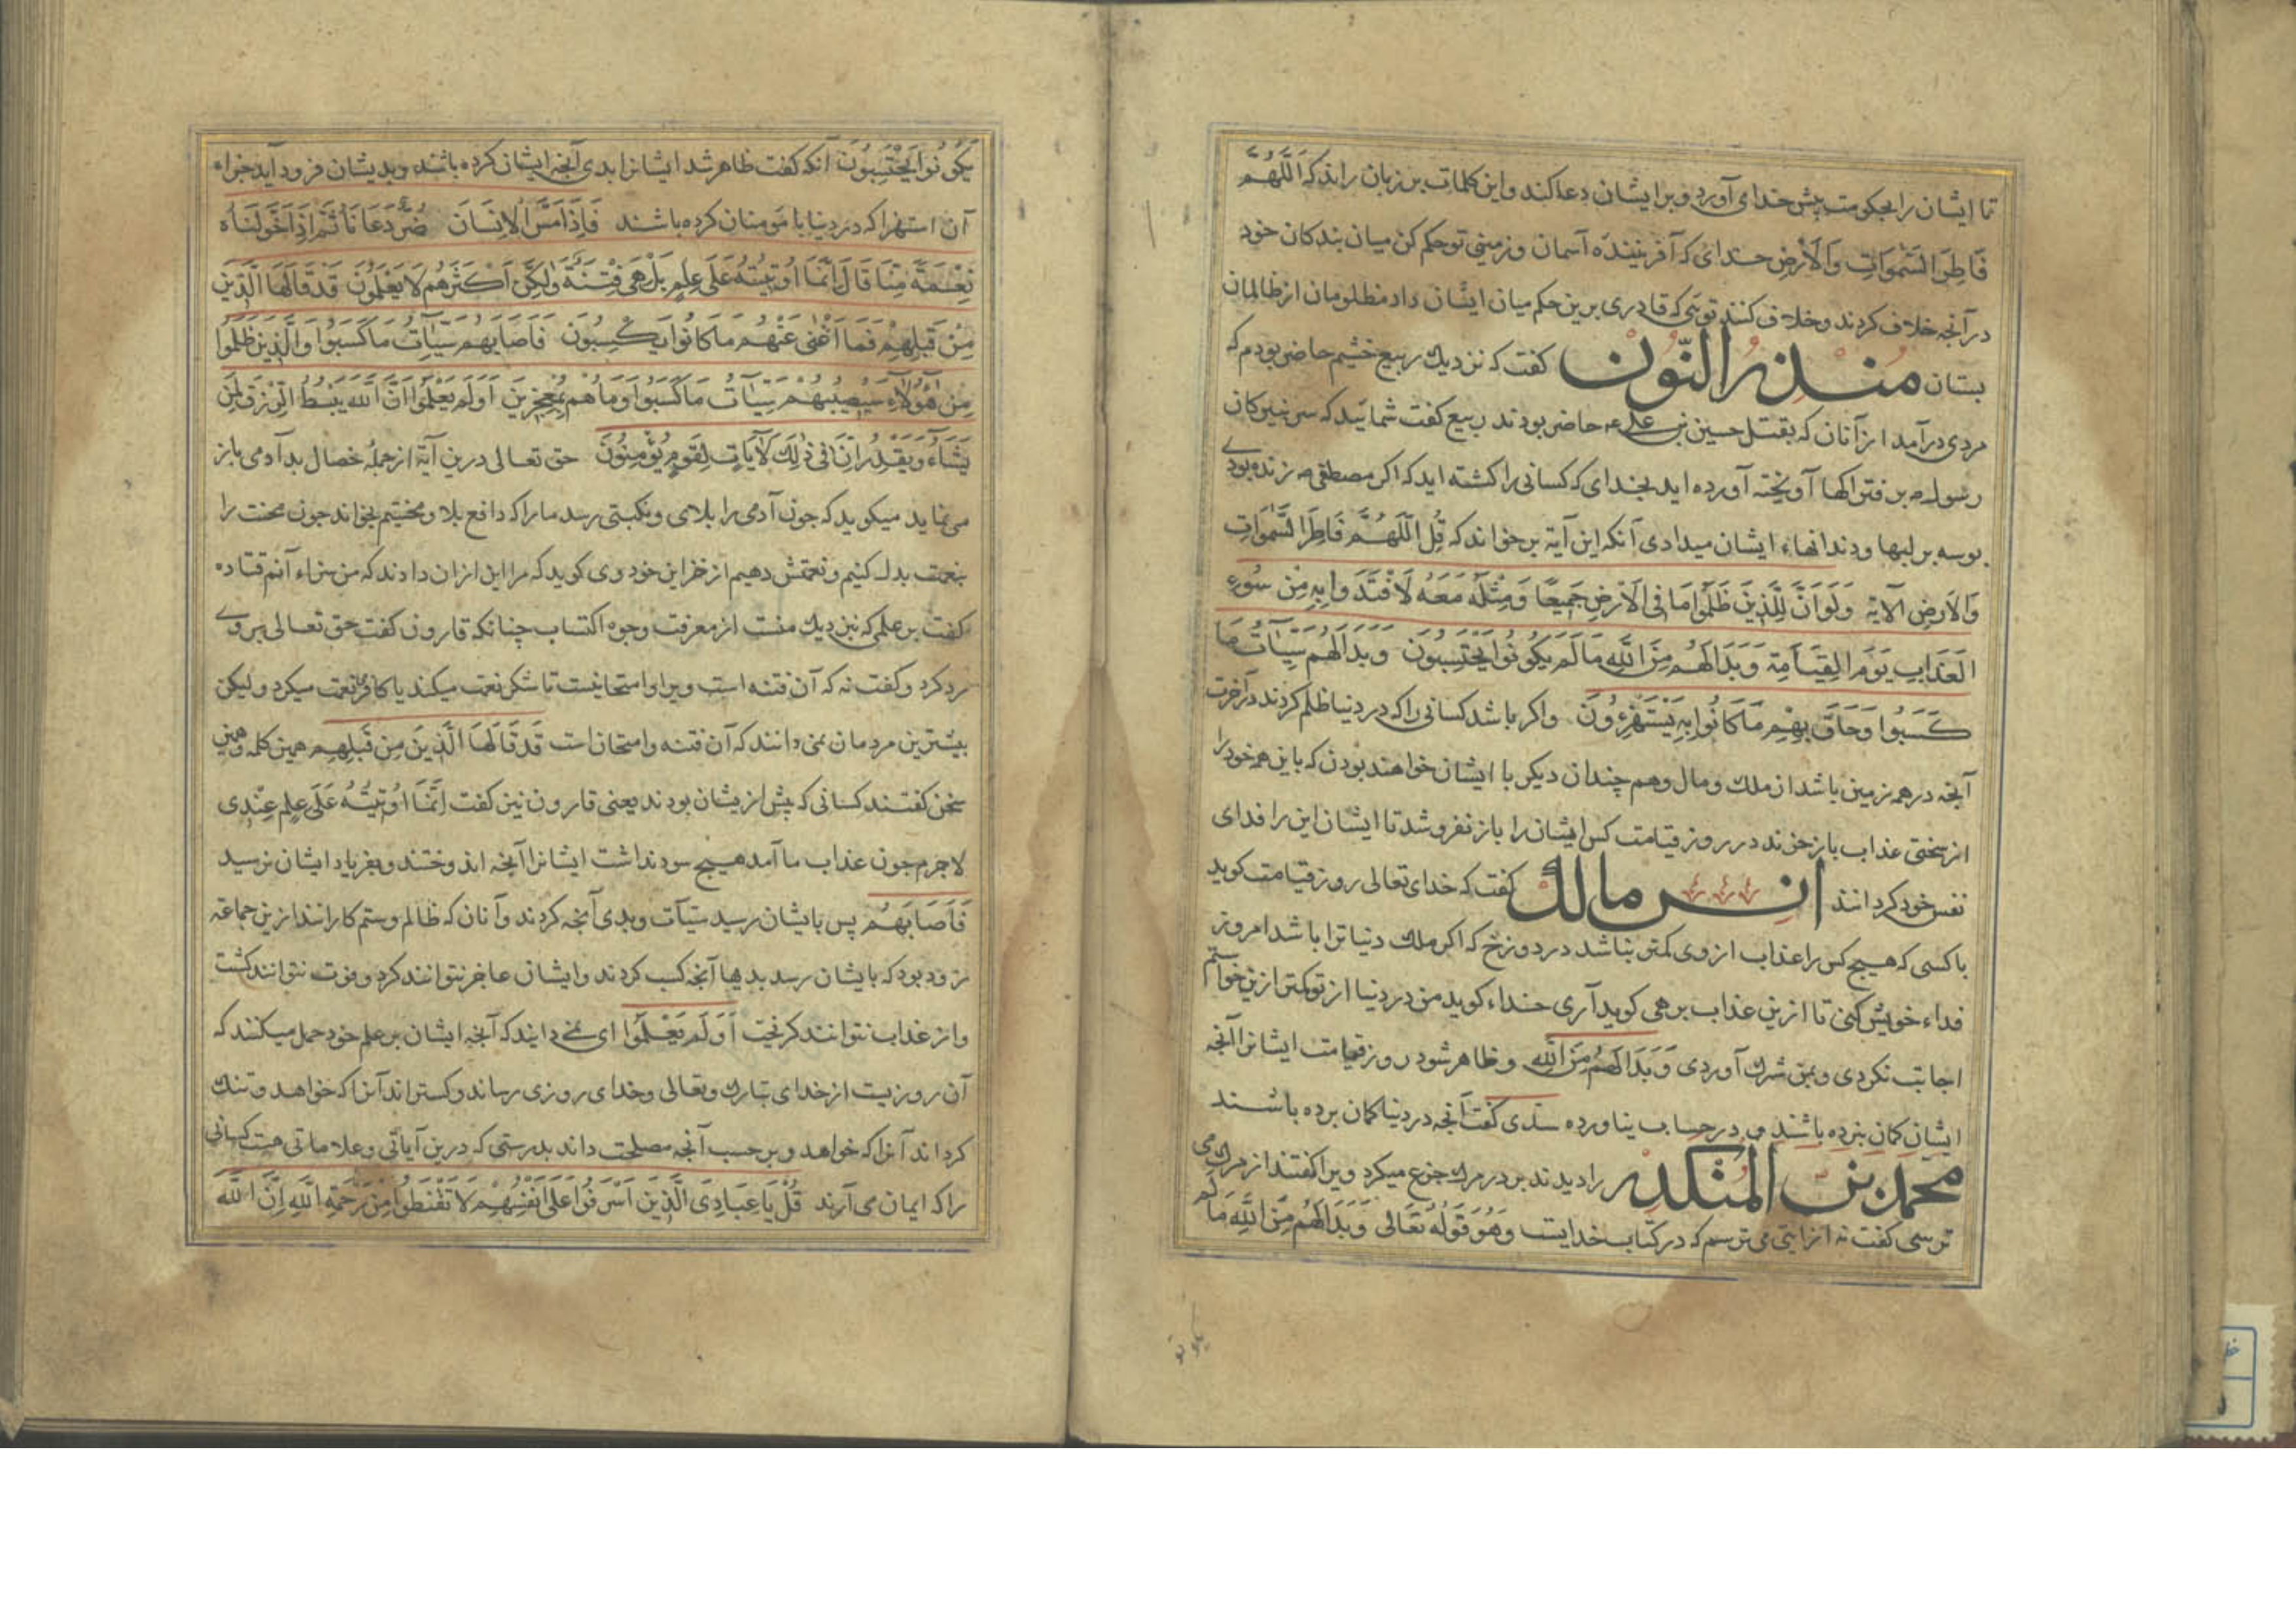 تا ایشان را بحکومت پیش خدای آورد و بر ایشان دعا کند و این کلمات بر زبان راند که اَللّٰهُمَّ
فَاطِرَ السَّمٰوَاتِ وَالْاَرْضِ خدای که آفریننده آسمان و زمینی تو حکم کن میان بندکان خود
در آنجه خلاف کردند و خلاف کنند توئی که قادری برین حکم میان ایشان داد مظلومان از ظالمان
بستان منذر النّون کفت که نزدیك ربیع خثیم حاضر بودم که
مردی درآمد از آنان که بقتل حسین بن علی عم حاضر بودند ربیع کفت شمائید که سرنیزکان
رسول ص بر فتراکها آویخته آورده اید بخدای که کسانی را کشته اید که اکر مصطفی ص زنده بودے
بوسه بر لبها و دندانهاء ایشان میدادی آنکه این آیة برخواند که قُلِ اللّٰهُمَّ فَاطِرَ السَّمٰوَاتِ
وَالْاَرْضِ الآیة وَلَوْ اَنَّ لِلَّذِينَ ظَلَمُوا مَا فِی الْاَرْضِ جَمِيعًا وَمِثْلَهُ مَعَهُ لَافْتَدَوْا بِهِ مِنْ سُوءِ
الْعَذَابِ يَوْمَ الْقِيَامَةِ وَبَدَا لَهُمْ مِنَ اللّٰهِ مَا لَمْ يَكُونُوا يَحْتَسِبُونَ وَبَدَا لَهُمْ سَيِّئَاتُ مَا
كَسَبُوا وَحَاقَ بِهِمْ مَا كَانُوا بِهِ يَسْتَهْزِءُونَ واکر باشد کسانی را که در دنیا ظلم کردند در آخرت
آنجه در همه زمین باشد از ملك و مال و هم چندان دیکر با ایشان خواهند بودن که باین همه خود را
از سختی عذاب باز خرند در روز قیامت کس ایشان را باز نفروشد تا ایشان این را فدای
نفس خود کردانند انس مالك کفت که خدای تعالی روز قیامت کوید
با کسی که هیچ کس را عذاب از وی کمتر نباشد در دوزخ که اکر ملك دنیا ترا باشد امروز
فداء خویش کنی تا ازین عذاب برهی کوید آری خداء کوید من در دنیا از تو کمتر ازین خواستم
اجابت نکردی و بمن شرك آوردی وَبَدَا لَهُمْ مِنَ اللّٰهِ و ظاهر شود روز قیامت ایشانرا آنجه
ایشان کمان نبرده باشند و در حساب نیاورده سدّی کفت آنجه در دنیا کمان برده باشند
محمد بن المنکدر را دیدند بر در مرك جزع میکرد ویرا کفتند از مرك می
ترسی کفت نه از آیتی می ترسم که در کتاب خدایست وَهُوَ قَوْلُهُ تَعَالٰی وَبَدَا لَهُمْ مِنَ اللّٰهِ مَا لَمْ
يَكُونُوا يَحْتَسِبُونَ آنکه کفت ظاهر شد ایشانرا بدی آنجه ایشان کرده باشند و بدیشان فرود آید جزاء
آن استهزا که در دنیا با مومنان کرده باشند فَاِذَا مَسَّ الْاِنْسَانَ ضُرٌّ دَعَانَا ثُمَّ اِذَا خَوَّلْنَاهُ
نِعْمَةً مِنَّا قَالَ اِنَّمَا اُوتِيتُهُ عَلَی عِلْمٍ بَلْ هِیَ فِتْنَةٌ وَلٰكِنَّ اَكْثَرَهُمْ لَا يَعْلَمُونَ قَدْ قَالَهَا الَّذِينَ
مِنْ قَبْلِهِمْ فَمَا اَغْنٰی عَنْهُمْ مَا كَانُوا يَكْسِبُونَ فَاَصَابَهُمْ سَيِّئَاتُ مَا كَسَبُوا وَالَّذِينَ ظَلَمُوا
مِنْ هٰؤُلَاءِ سَيُصِيبُهُمْ سَيِّئَاتُ مَا كَسَبُوا وَمَا هُمْ بِمُعْجِزِينَ اَوَلَمْ يَعْلَمُوا اَنَّ اللّٰهَ يَبْسُطُ الرِّزْقَ لِمَنْ
يَشَاءُ وَيَقْدِرُ اِنَّ فِی ذٰلِكَ لَآيَاتٍ لِقَوْمٍ يُؤْمِنُونَ حق تعالی درین آیة از جملهٔ خصال بد آدمی باز
می نماید میکوید که جون آدمی را بلای و نکبتی رسد ما را که دافع بلا و محنتیم بخواند جون محنت را
بنعمت بدل کنیم و نعمتش دهیم از خزاین خود وی کوید که مرا این از ان دادند که من سزاء آنم قتاده
کفت بر علمی که نزدیك منست از معرفت وجوه اکتساب چنانکه قارون کفت حق تعالی بر وے
رد کرد و کفت نه که آن فتنه است ویرا و امتحانیست تا شکر نعمت میکند یا کافری نعمت میکرد ولیکن
بیشترین مردمان نمی دانند که آن فتنه و امتحان است قَدْ قَالَهَا الَّذِينَ مِنْ قَبْلِهِمْ همین کلمه و همین
سخن کفتند کسانی که پیش از یشان بودند یعنی قارون نیز کفت اِنَّمَا اُوتِيتُهُ عَلَی عِلْمٍ عِنْدِی
لاجرم جون عذاب ما آمد هیچ سود نداشت ایشانرا آنجه اندوختند و بفریاد ایشان نرسید
فَاَصَابَهُمْ پس بایشان رسید سیّآت و بدی آنجه کردند و آنان که ظالم و ستم کارانند ازین جماعة
زود بود که بایشان رسد بدیها آنجه کسب کردند و ایشان عاجز نتوانند کرد و فوت نتوانند کشت
و از عذاب نتوانند کریخت اَوَلَمْ يَعْلَمُوا ای نمے دانند که آنجه ایشان بر علم خود حمل میکنند که
آن روزیست از خدای تبارك و تعالی و خدای روزی رساند و کستراند آنرا که خواهد و تنك
کرداند آنرا که خواهد و بر حسب آنجه مصلحت داند بدرستی که درین آیاتی و علاماتی هست کسانی
را که ایمان می آرند قُلْ يَا عِبَادِیَ الَّذِينَ اَسْرَفُوا عَلٰی اَنْفُسِهِمْ لَا تَقْنَطُوا مِنْ رَحْمَةِ اللّٰهِ اِنَّ اللّٰهَ